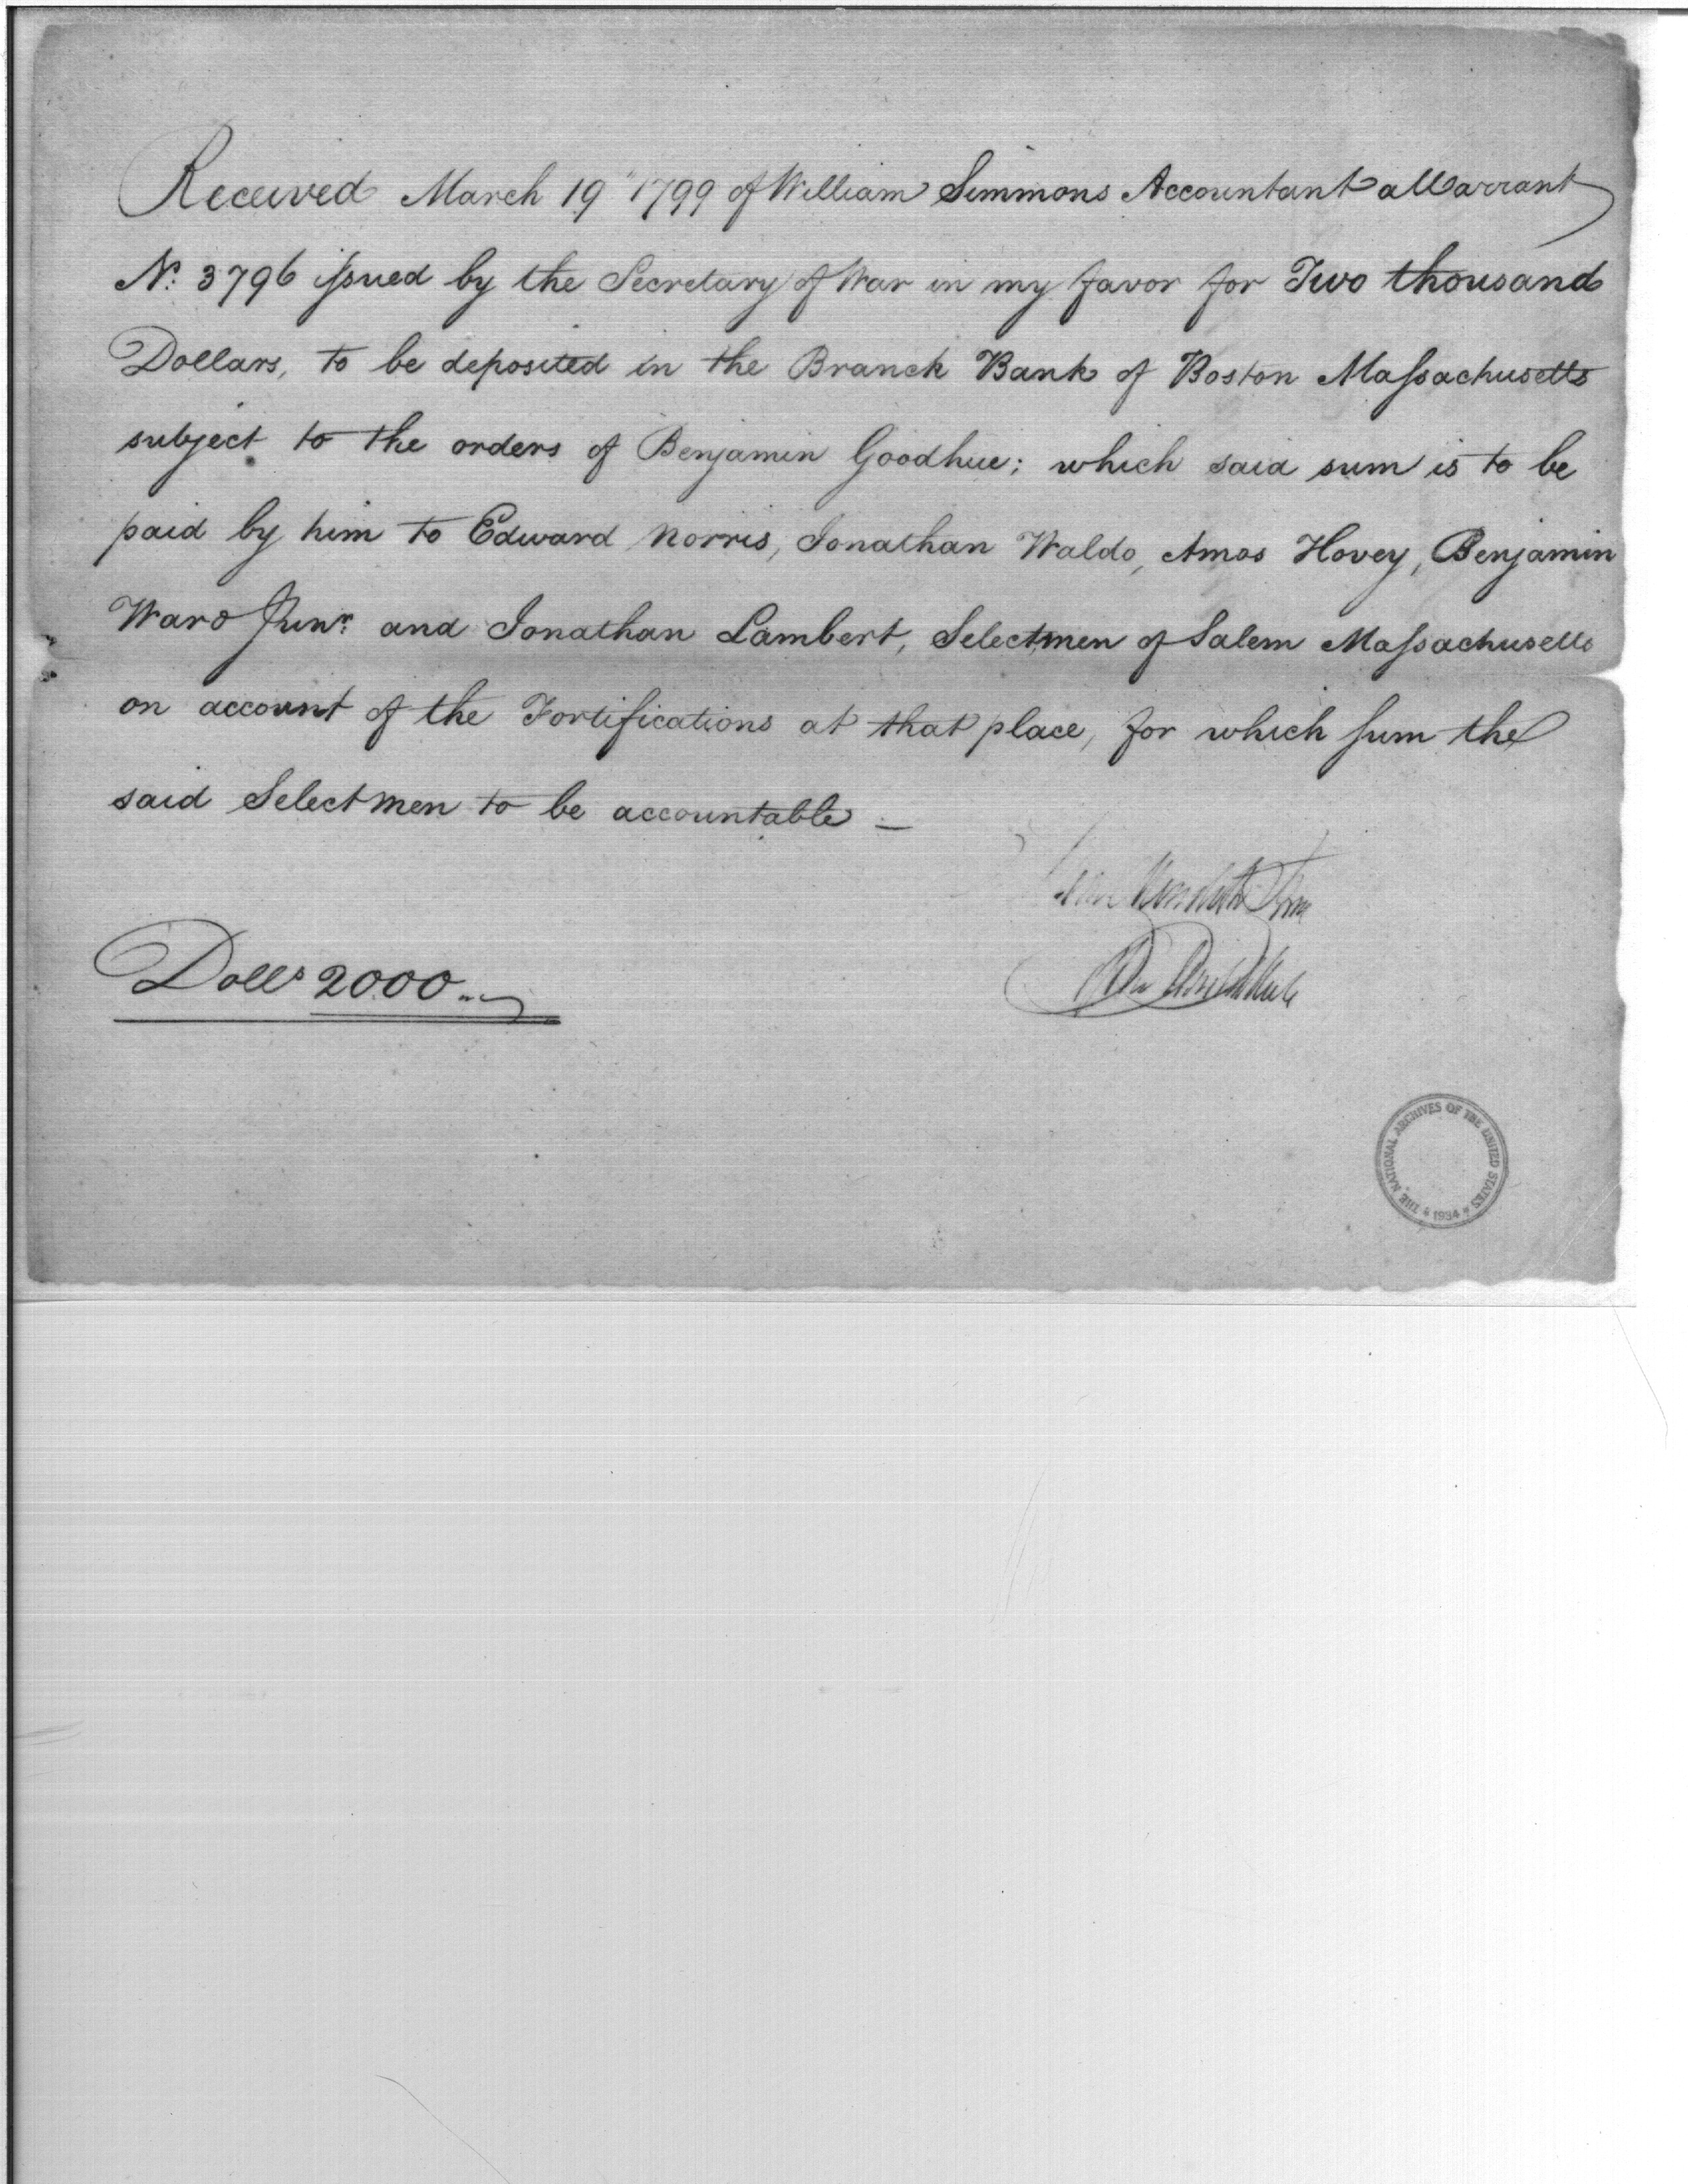 Received March 19th 1799 of William Simmons Accountant a Warrant
No: 3796 issued by the Secretary of War in my favor for Two thousand
Dollars, to be deposited in the Branch Bank of Boston Massachusetts
subject to the orders of Benjamin Goodhue; which said sum is to be
paid by him to Edward Norris, Jonathan Waldo, Amos Hovey, Benjamin
Ward Junr: and Jonathan Lambert, Selectmen of Salem Massachusetts
on account of the Fortifications at that place, for which sum the
said Selectmen to be accountable –
Dolls 2000
THE NATIONAL ARCHIVES OF THE UNITED STATES
1934